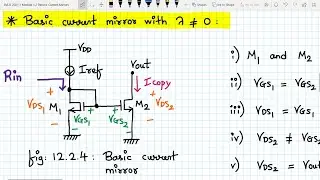 * Basic current mirror with λ ≠ 0 :
VDD
Iref
Vout
Rin
Icopy
VDS1
M1
VGS1
VGS2
M2
VDS2
fig: 12.2.4 : Basic current mirror
i) M1 and M2
ii) VGS1 = VGS2
iii) VDS1 = VGS1
iv) VDS2 ≠ VGS
v) VDS2 = Vout